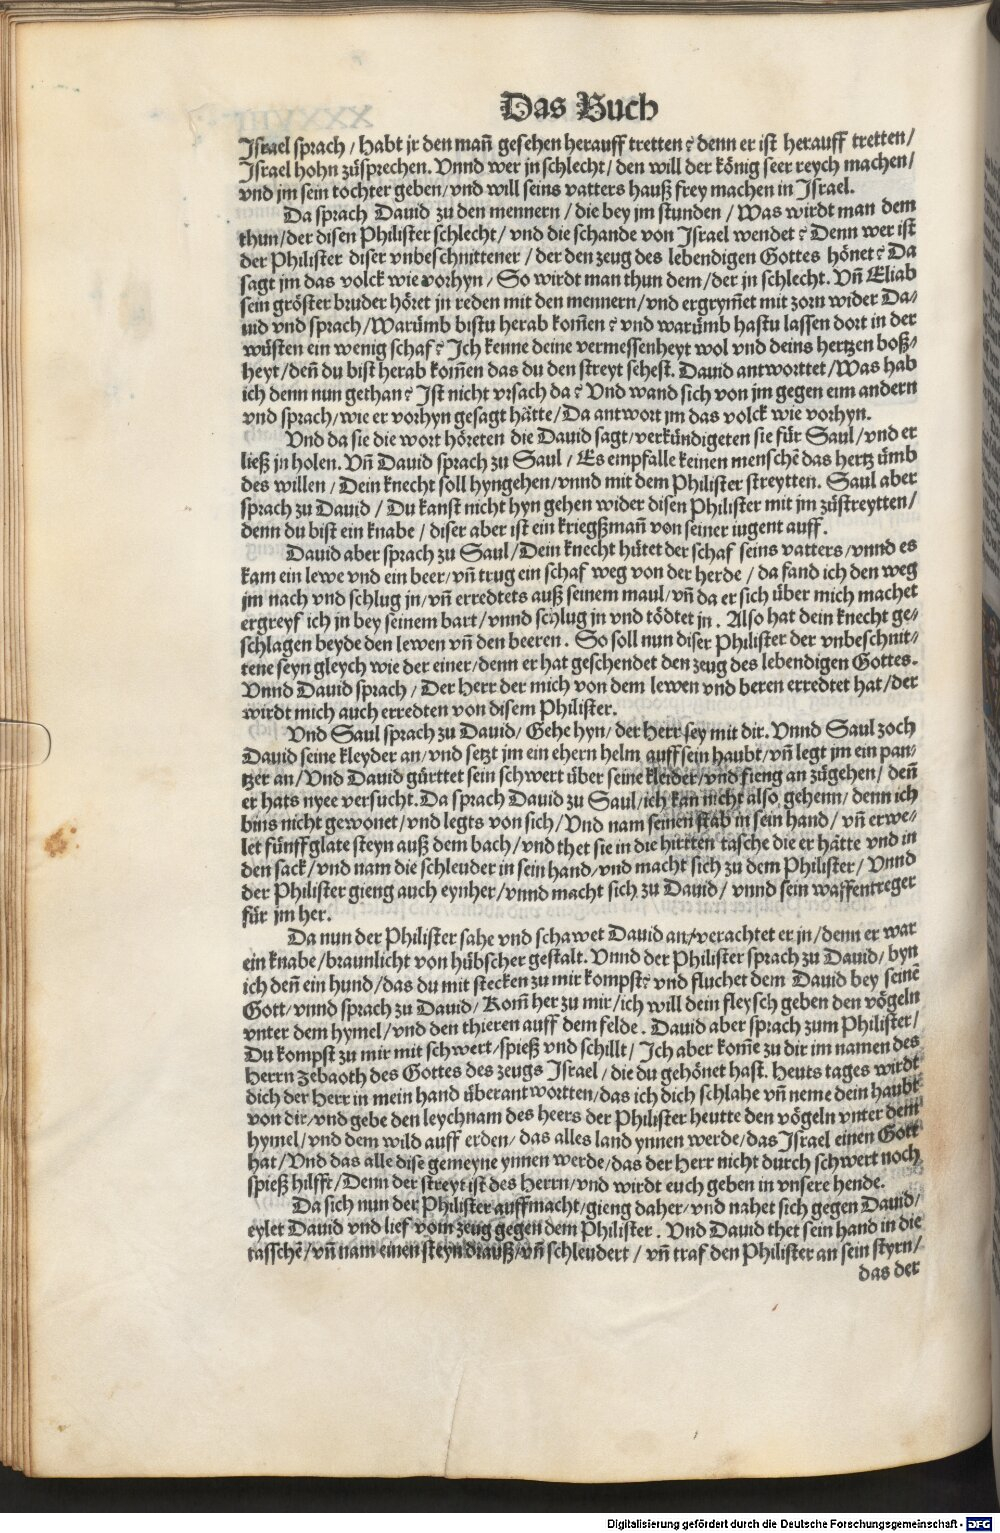 Das Buch
Israel sprach / Habt jr den mañ gesehen herauff tretten? denn er ist herauff tretten /
Israel hohn zůsprechen. Vnnd wer jn schlecht / den will der künig seer reych machen /
vnd jm sein tochter geben / vnd will seins vatters hauß frey machen in Israel.
Da sprach Dauid zu den mennern / die bey jm stunden / Was wirdt man dem
thun / der disen Philister schlecht / vnd die schande von Israel wendet? Denn wer ist
der Philister diser vnbeschnittener / der den zeug des lebendigen Gottes hönet? Da
sagt jm das volck wie vorhyn / So wirdt man thun dem / der jn schlecht. Vñ Eliab
sein gröster bruder höret jn reden mit den mennern / vnd ergrym̃et mit zorn wider Da/
uid vnd sprach / Warümb bistu herab kom̃en? vnd warümb hastu lassen dort in der
wüsten ein wenig schaf? Ich kenne deine vermessenheyt wol vnd deins hertzen boß/
heyt / deñ du bist herab kom̃en das du den streyt sehest. Dauid antworttet / Was hab
ich denn nun gethan? Ist nicht vrsach da? Vnd wand sich von jm gegen eim andern
vnd sprach / wie er vorhyn gesagt hätte / Da antwort jm das volck wie vorhyn.
Vnd da sie die wort höreten die Dauid sagt / verkündigeten sie für Saul / vnd er
ließ jn holen. Vñ Dauid sprach zu Saul / Es empfalle keinen menschẽ das hertz ümb
des willen / Dein knecht soll hyngehen / vnnd mit dem Philister streytten. Saul aber
sprach zu Dauid / Du kanst nicht hyn gehen wider disen Philister mit jm zůstreytten /
denn du bist ein knabe / diser aber ist ein kriegßmañ von seiner iugent auff.
Dauid aber sprach zu Saul / Dein knecht hütet der schaf seins vatters / vnnd es
kam ein lewe vnd ein beer / vñ trug ein schaf weg von der herde / da fand ich den weg
jm nach vnd schlug jn / vñ erredtets auß seinem maul / vñ da er sich über mich machet
ergreyf ich jn bey seinem bart / vnnd schlug jn vnd tödtet jn. Also hat dein knecht ge/
schlagen beyde den lewen vñ den beeren. So soll nun diser Philister der vnbeschnit/
tene seyn gleych wie der einer / denn er hat geschendet den zeug des lebendigen Gottes.
Vnnd Dauid sprach / Der Herr der mich von dem lewen vnd beren erredtet hat / der
wirdt mich auch erredten von disem Philister.
Vnd Saul sprach zu Dauid / Gehe hyn / der Herr sey mit dir. Vnnd Saul zoch
Dauid seine kleyder an / vnd setzt jm ein ehern helm auff sein haubt / vñ legt jm ein pan/
tzer an / Vnd Dauid gürttet sein schwert über seine kleider / vnd fieng an zůgehen / deñ
er hats nyee versucht. Da sprach Dauid zu Saul / ich kan nicht also gehenn / denn ich
bins nicht gewonet / vnd legts von sich / Vnd nam seinen stab in sein hand / vñ erwe/
let fünff glate steyn auß dem bach / vnd thet sie in die hirtten tasche die er hätte vnd in
den sack / vnd nam die schleuder in sein hand / vnd macht sich zu dem Philister / Vnnd
der Philister gieng auch eynher / vnnd macht sich zu Dauid / vnnd sein waffentreger
für jm her.
Da nun der Philister sahe vnd schawet Dauid an / verachtet er jn / denn er war
ein knabe / braunlicht von hübscher gestalt. Vnnd der Philister sprach zu Dauid / byn
ich deñ ein hund / das du mit stecken zu mir kompst? vnd fluchet dem Dauid bey seinẽ
Gott / vnnd sprach zu Dauid / Kom̃ her zu mir / ich will dein fleysch geben den vögeln
vnter dem hymel / vnd den thieren auff dem felde. Dauid aber sprach zum Philister /
Du kompst zu mir mit schwert / spieß vnd schillt / Ich aber kom̃e zu dir im namen des
Herrn Zebaoth des Gottes des zeugs Israel / die du gehönet hast. Heuts tages wirdt
dich der Herr in mein hand überantwortten / das ich dich schlahe vñ neme dein haubt
von dir / vnd gebe den leychnam des heers der Philister heutte den vögeln vnter dem
hymel / vnd dem wild auff erden / das alles land ynnen werde / das Israel einen Gott
hat / Vnd das alle dise gemeyne ynnen werde / das der Herr nicht durch schwert noch
spieß hilfft / Denn der streyt ist des Herrn / vnd wirdt euch geben in vnsere hende.
Da sich nun der Philister auffmacht / gieng daher / vnd nahet sich gegen Dauid /
eylet Dauid vnd lief vom zeug gegen dem Philister. Vnd Dauid thet sein hand in die
tasschẽ / vñ nam einen steyn drauß / vñ schleudert / vñ traf den Philister an sein styrn /
das der
Digitalisierung gefördert durch die Deutsche Forschungsgemeinschaft - DFG